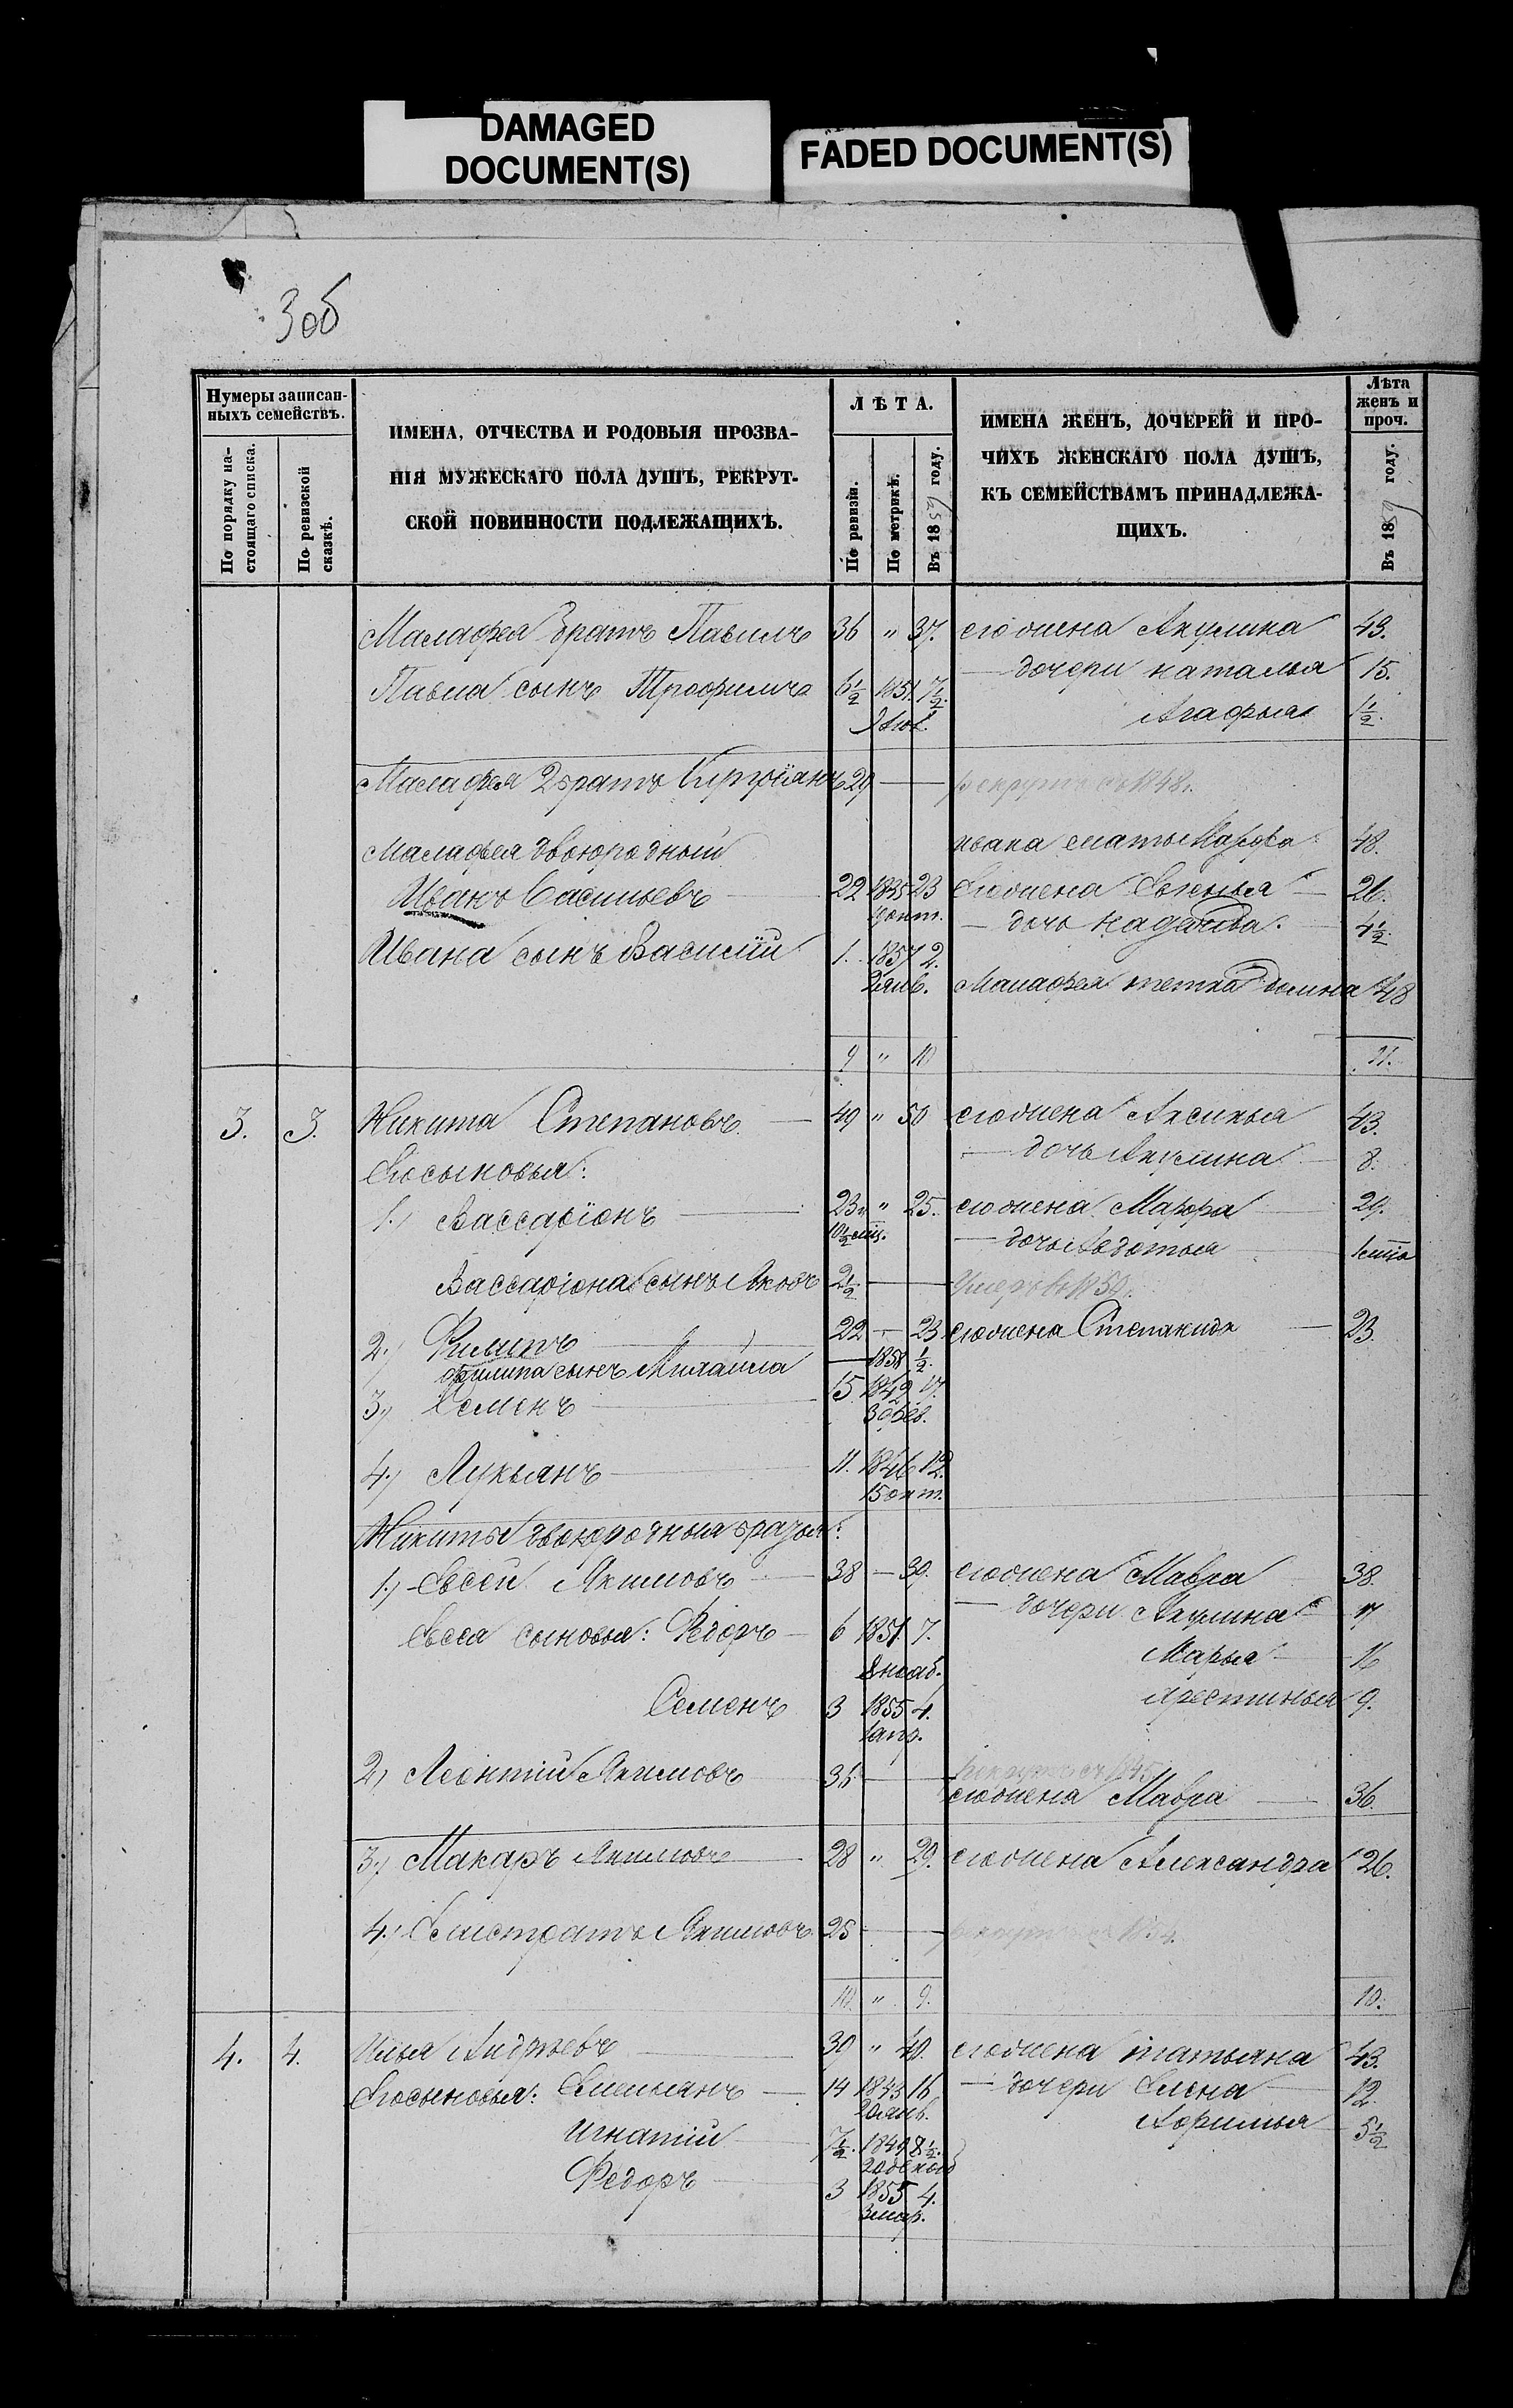 DAMAGED
DOCUMENT(S)
FADED DOCUMENT(S)
3об
Нумеры записан-
ныхъ семействъ.
По порядку на-
стоящаго списка.
По ревизской
сказкѣ.
ИМЕНА, ОТЧЕСТВА И РОДОВЫЯ ПРОЗВА-
НІЯ МУЖЕСКАГО ПОЛА ДУШЪ, РЕКРУТ-
СКОЙ ПОВИННОСТИ ПОДЛЕЖАЩИХЪ.
ЛѢТА.
По ревизіи.
По метрикѣ.
Въ 1859 году.
ИМЕНА ЖЕНЪ, ДОЧЕРЕЙ И ПРО-
ЧИХЪ ЖЕНСКАГО ПОЛА ДУШЪ,
КЪ СЕМЕЙСТВАМЪ ПРИНАДЛЕЖА-
ЩИХЪ.
Лѣта
женъ и
проч.
Въ 1859 году.
Малафея братъ Павилъ 36 " 37. его жена Акулина 43.
— дочери наталья 15.
Павла сынъ Трофимъ 6½ 1851. 7½.
Агафья 1½.
Малафея 2 братъ 29 — рекрутъ съ 1848.
Малафея двоюродный
ивана мать Марфа 48.
Иванъ Васильевъ 22 1835 23 Его жена Евгенья — 26.
9 окт. — дочь надежда. 4½.
Ивана сынъ Василій 1. 1857 2.
2 янв. Малафея тетка домна 48
9 " 10 11.
3. 3. Никита Степановъ. — 49 " 50 его жена Аксинья 43.
— дочь Акулина 8.
Его сыновья:
1., Вассаріонъ — 23 " 25. его жена Марфа 29.
10½ мц. — дочь Авдотья 1 лѣто
Вассаріона сынъ Яковъ 2½ — Умеръ въ 1859.
2., Филипъ — 22 — 23 его жена Степанида — 23.
Филипа сынъ Михайла — 1858 ½.
3., Семенъ — 15 1842 17.
3 фев.
4., Лукьянъ — 11. 1846 12.
15 окт.
Никиты двоюродныя братья:
1., Евсей Якимовъ — 38 — 39. его жена Мавра 38.
— дочери Акулина 17
Евсея сыновья: Федоръ — 6 1851. 7.
8 нояб. Марья 16
Семенъ 3 1855 4. 9.
1 апр.
2, Леонтий Якимовъ 36 — рекрутъ съ 1845
его жена Мавра — 36.
3., Макаръ Якимовъ — 28 " 29. его жена Александра 26.
4., Якимовъ. 25 — рекрутъ съ 1854.
10. " 9. 10.
4. 4. Илья Андреевъ — 39 " 40. его жена татьяна 43.
Его сыновья: Емельянъ — 14 1843 16 — дочери Елена — 12.
20 янв.
Игнатій 7½. 1849 8½. 5½
Федоръ — 3 1855 4.
3 мар.